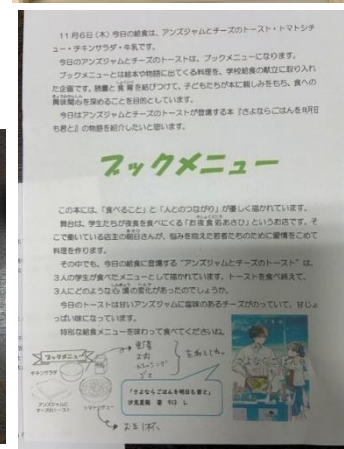 11月6日(木)今日の給食は、アンズジャムとチーズのトースト・トマトシチ
ュー・チキンサラダ・牛乳です。
今日のアンズジャムとチーズのトーストは、ブックメニューになります。
ブックメニューとは絵本や物語に出てくる料理を、学校給食の献立に取り入れ
た企画です。読書と食育を結びつけて、子どもたちが本に親しみをもち、食への
興味関心を深めることを目的としています。
今日はアンズジャムとチーズのトーストが登場する本『さよならごはんを明日
も君と』の物語を紹介したいと思います。
ブックメニュー
この本には、「食べること」と「人とのつながり」が優しく描かれています。
舞台は、学生たちが夜食を食べにくる「お夜食処あさひ」というお店です。そ
こで働いている店主の朝日さんが、悩みを抱えた若者たちのために愛情をこめて
料理を作ります。
その中でも、今日の給食に登場する“アンズジャムとチーズのトースト”は、
3人の学生が食べたメニューとして描かれています。トーストを食べ終えて、
3人にどのような心情の変化があったのでしょうか。
今日のトーストは甘いアンズジャムに塩味のあるチーズがのっていて、甘じょ
っぱい味になっています。
特別な給食メニューを味わって食べてくださいね。
ブックメニュー
チキンサラダ
アンズジャムと
チーズのトースト
トマトシチュー
「さよならごはんを明日も君と」
汐見夏衛 著 913 L
さよならごはんを